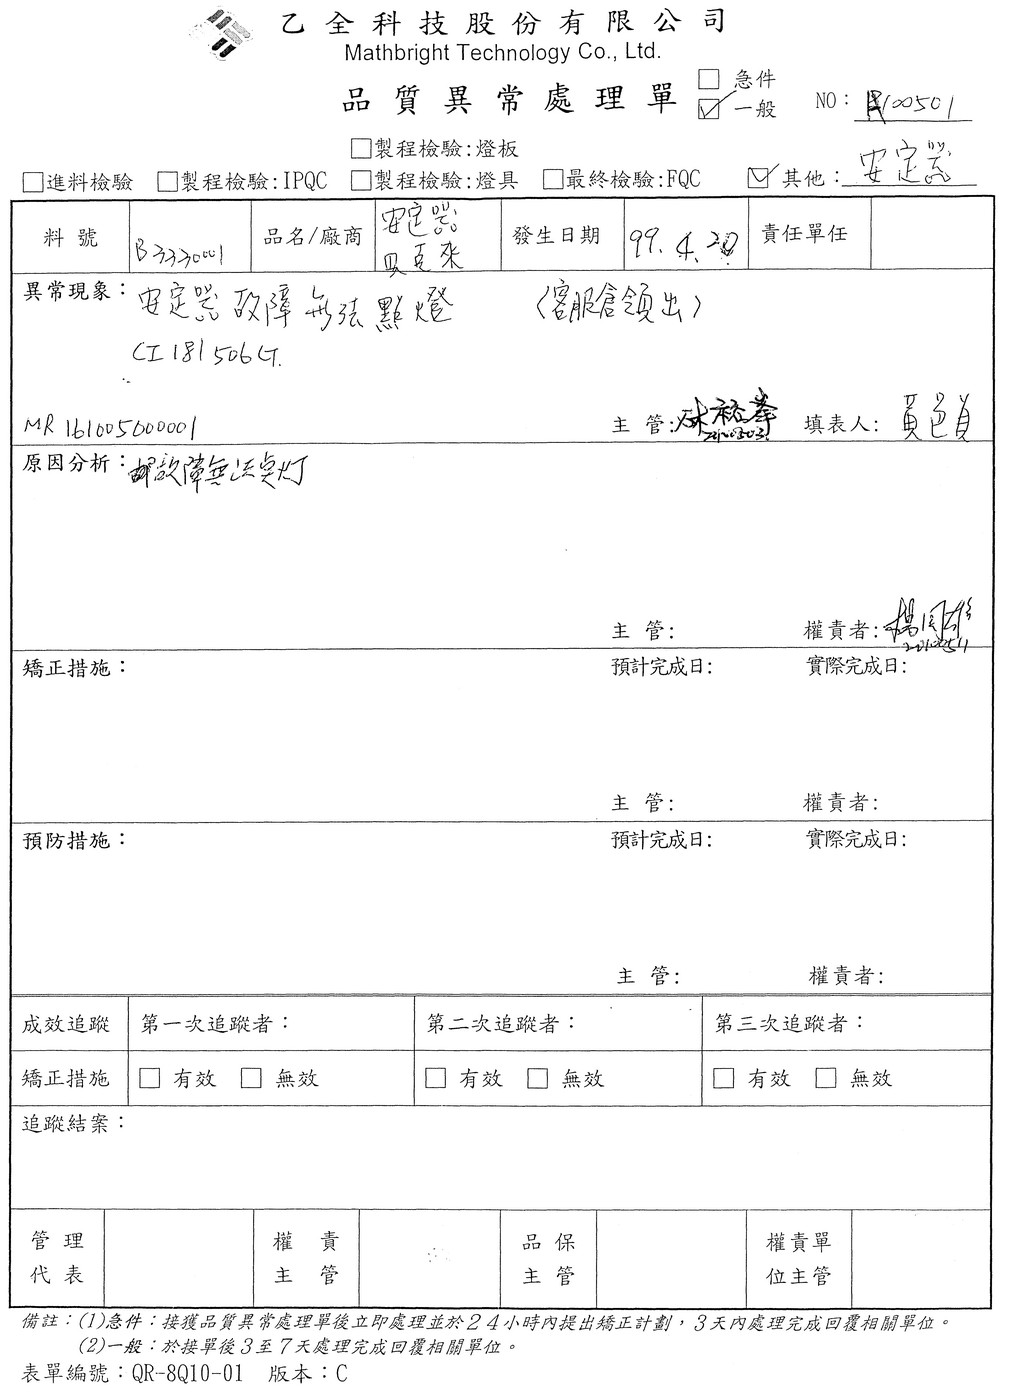 乙全科技股份有限公司
Mathbright Technology Co., Ltd.
品質異常處理單
□ 急件
☑ 一般
NO: 100501
□製程檢驗:燈板
□進料檢驗 □製程檢驗:IPQC □製程檢驗:燈具 □最終檢驗:FQC ☑ 其他: 安定器
料號 B3330001 品名/廠商 安定器 貝克來 發生日期 99.4.20 責任單任
異常現象: 安定器故障無法點燈 (客服倉領出)
CI181506GT.
MR161005000001 主管: 填表人: 黃邑員
原因分析: 故障無法点灯
主管: 權責者: 20100511
矯正措施: 預計完成日: 實際完成日:
主管: 權責者:
預防措施: 預計完成日: 實際完成日:
主管: 權責者:
成效追蹤 第一次追蹤者: 第二次追蹤者: 第三次追蹤者:
矯正措施 □ 有效 □ 無效 □ 有效 □ 無效 □ 有效 □ 無效
追蹤結案:
管理代表 權責主管 品保主管 權責單位主管
備註:(1)急件:接獲品質異常處理單後立即處理並於24小時內提出矯正計劃,3天內處理完成回覆相關單位。
(2)一般:於接單後3至7天處理完成回覆相關單位。
表單編號:QR-8Q10-01 版本:C